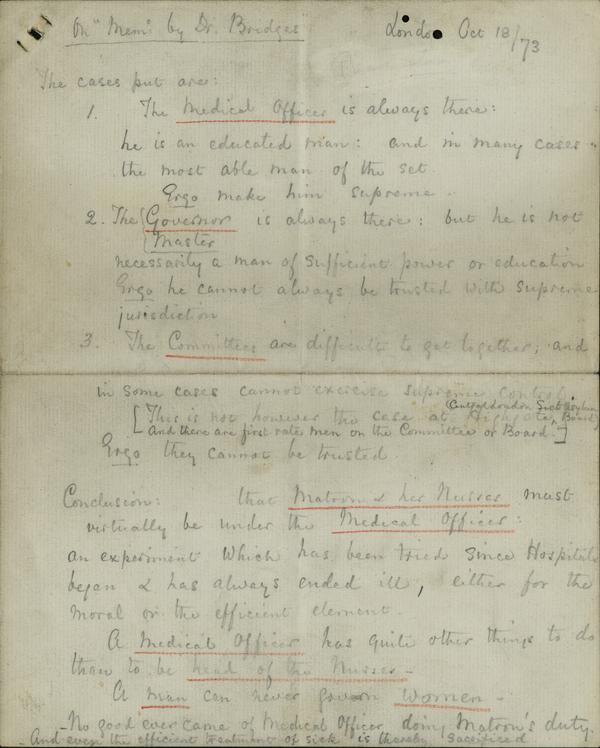 On "Mem: by Dr. Bridges"
London Oct 18/73
The cases put are:
1. The Medical Officer is always there:
he is an educated man: and in many cases
the most able man of the set
Ergo make him supreme.
2. The Governor is always there; but he is not
Master
necessarily a man of sufficient power or education
Ergo he cannot always be trusted with supreme
jurisdiction
3. The Committees are difficult to get together; and
in some cases cannot exercise supreme control
Central London Sick Asylum
[This is not however the case at Highgate, Board
And there are first rate men on the Committee or Board.]
Ergo they cannot be trusted.
Conclusion: that Matron & her Nurses must
virtually be under the Medical Officer:
an experiment which has been tried since Hospitals
began & has always ended ill, either for the
moral or the efficient element.
A Medical Officer has quite other things to do
than to be head of the Nurses -
A man can never govern women -
- No good ever came of Medical Officer doing Matron's duty.
- And even the efficient treatment of sick is thereby sacrificed